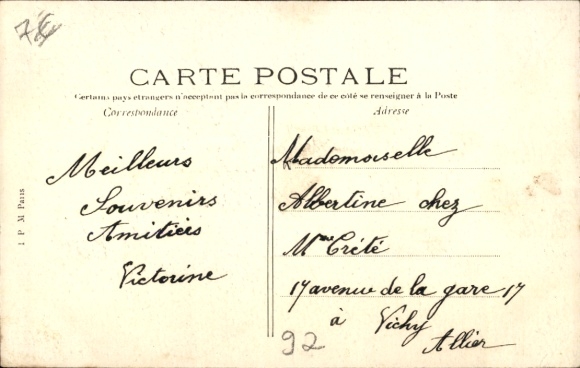 CARTE POSTALE
Certains pays etrangers n'acceptent pas la correspondance de ce côté se renseigner à la Poste
Correspondance
Adresse
Meilleurs
Souvenirs
Amitiées
Victorine
Mademoiselle
Albertine chez
Mme Crété
17 avenue de la gare 17
à Vichy
Allier
92
I P M Paris